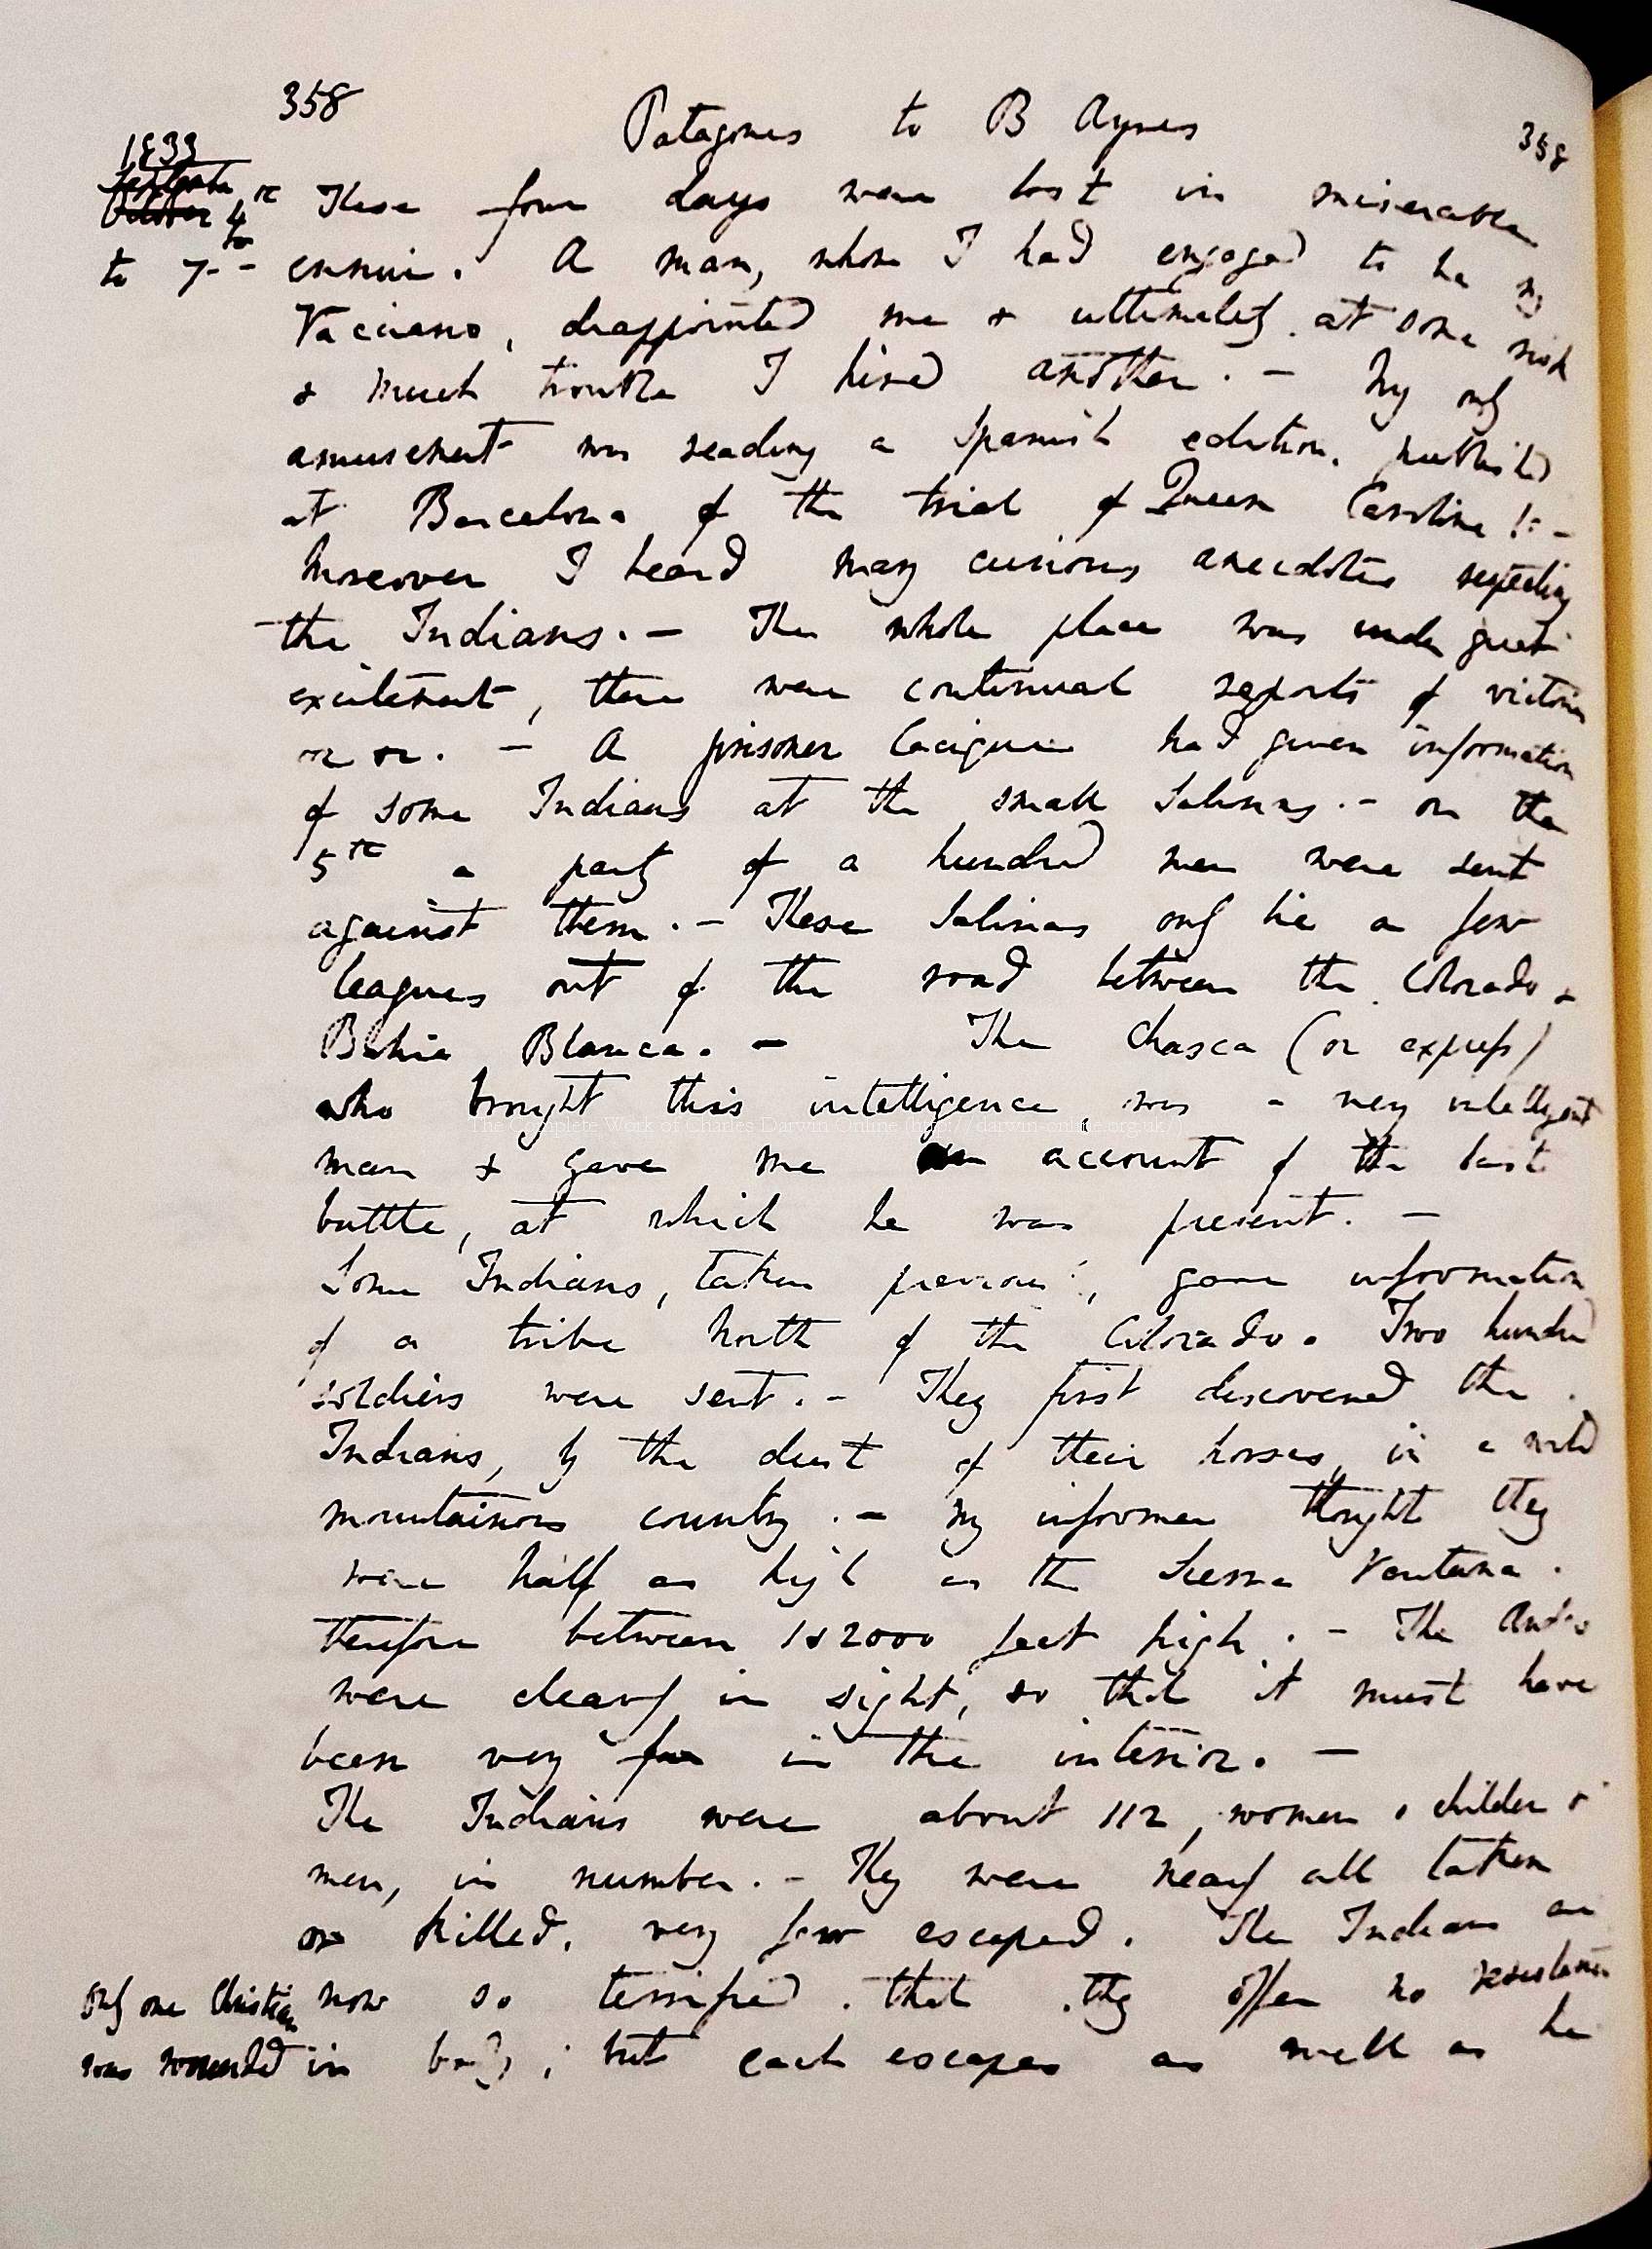 358
Patagones to B Ayres
358
1833
September
October 4th
to 7th -
These four days were lost in miserable
ennui. A man, whom I had engaged to be my
Vaciano, disappointed me & ultimately at some risk
& much trouble I hired another. — My only
amusement was reading a Spanish edition, published
at Barcelona of the trial of Queen Caroline!! —
Moreover I heard many curious anecdotes respecting
the Indians. — The whole place was under great
excitement, there were continual reports of victories
&c &c. — A prisoner Cacique had given information
of some Indians at the small Salinas. — on the
5th a party of a hundred men were sent
against them. — These Salinas only lie a few
leagues out of the road between the Colorado &
Bahia Blanca. — The Chasca (or express)
who brought this intelligence, was a very intelligent
man & gave me an account of the last
battle, at which he was present. —
Some Indians, taken previous, gave information
of a tribe North of the Colorado. Two hundred
soldiers were sent. — They first discovered the
Indians, by the dust of their horses, in a wild
mountainous country. — My informer thought they
were half as high as the Sierra Ventana.
therefore between 1 & 2000 feet high. — The Andes
were clearly in sight, so that it must have
been very far in the interior. —
The Indians were about 112, women & children &
men, in number. — They were nearly all taken
or killed, very few escaped. The Indians are
now so terrified that they offer no resistance
in body; but each escapes as well as he
Only one Christian
was wounded
The Complete Work of Charles Darwin Online (http://darwin-online.org.uk/)